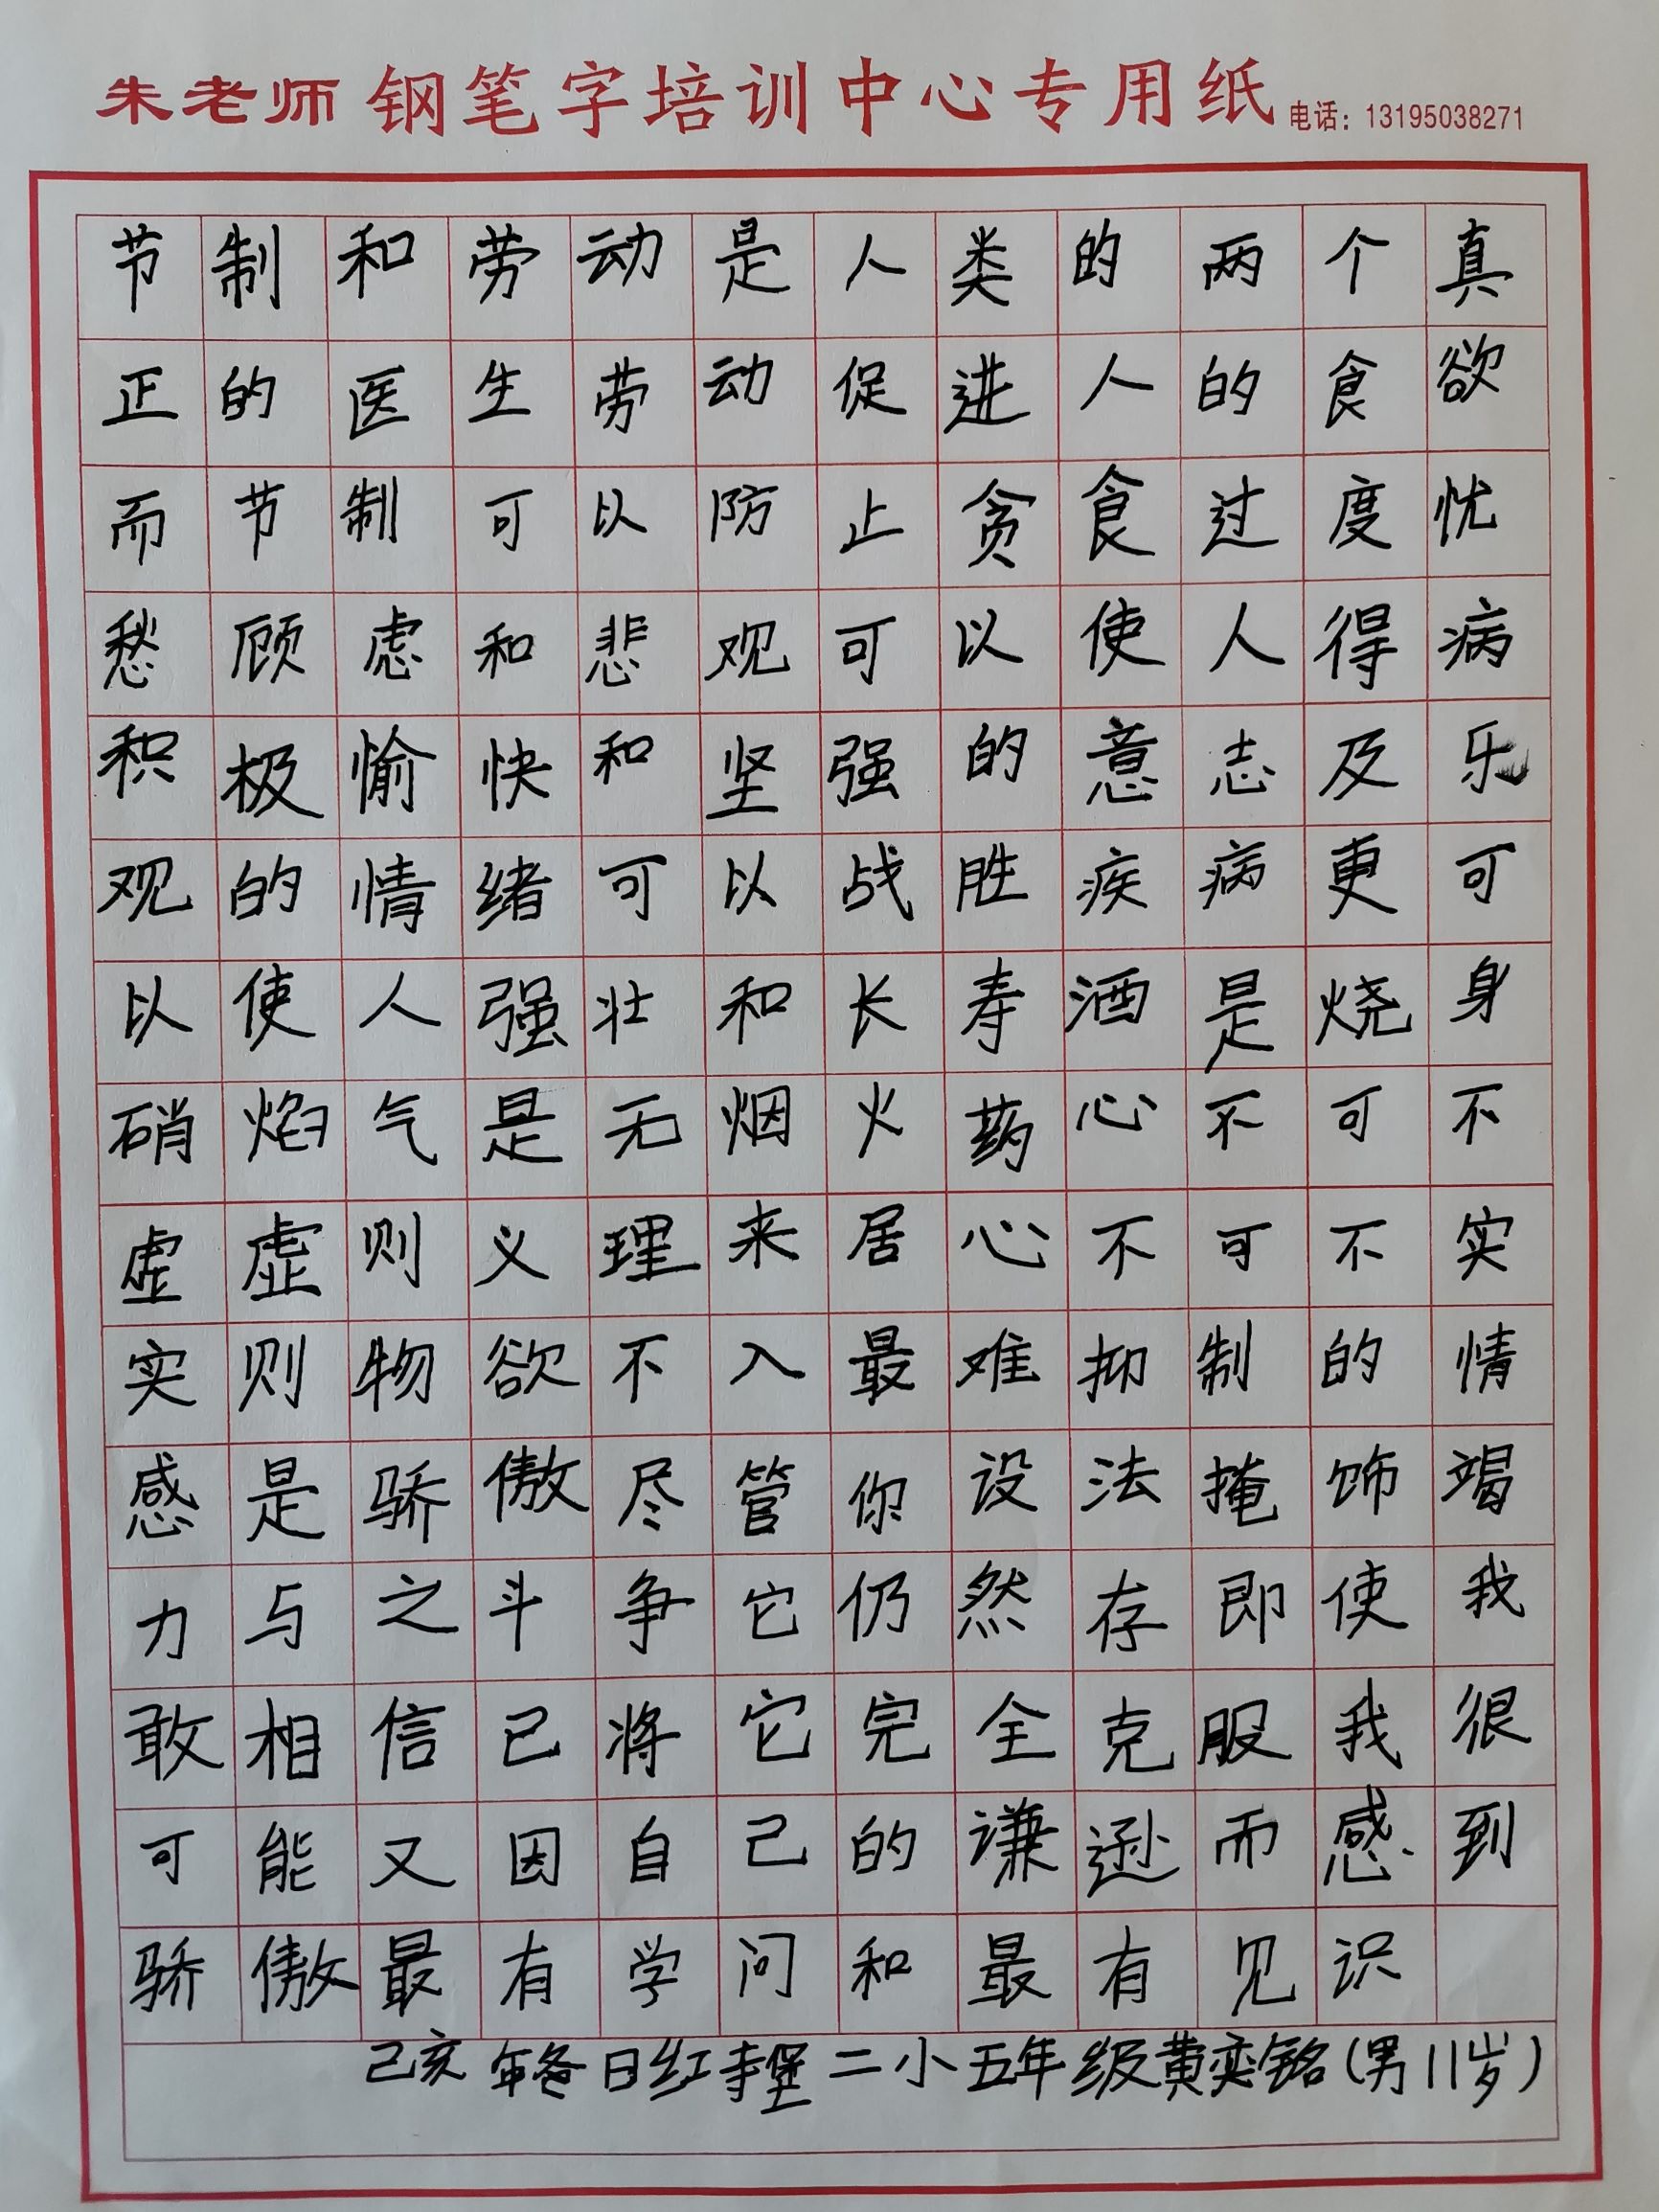 朱老师钢笔字培训中心专用纸 电话：13195038271
节制和劳动是人类的两个真
正的医生劳动促进人的食欲
而节制可以防止贪食过度忧
愁顾虑和悲观可以使人得病
积极愉快和坚强的意志及乐
观的情绪可以战胜疾病更可
以使人强壮和长寿酒是烧身
硝焰气是无烟火药心不可不
虚虚则义理来居心不可不实
实则物欲不入最难抑制的情
感是骄傲尽管你设法掩饰竭
力与之斗争它仍然存即使我
敢相信已将它完全克服我很
可能又因自己的谦逊而感到
骄傲最有学问和最有见识
己亥年冬日红寺堡二小五年级黄奕铭(男11岁)